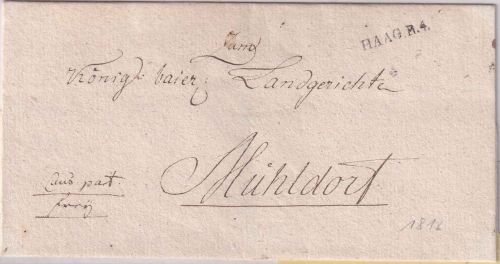 HAAG. R.4.
Zum
Königl baier: Landgerichte
Mühldorf
frey
1816